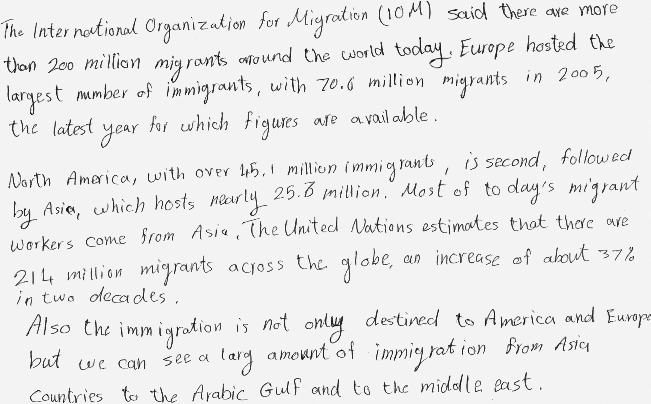 The International Organization for Migration (IOM) said there are more
than 200 million migrants around the world today. Europe hosted the
largest number of immigrants, with 70.6 million migrants in 2005,
the latest year for which figures are available.
North America, with over 45.1 million immigrants, is second, followed
by Asia, which hosts nearly 25.3 million. Most of today's migrant
workers come from Asia. The United Nations estimates that there are
214 million migrants across the globe, an increase of about 37%
in two decades.
Also the immigration is not only destined to America and Europe
but we can see a larg amount of immigration from Asia
Countries to the Arabic Gulf and to the middle east.